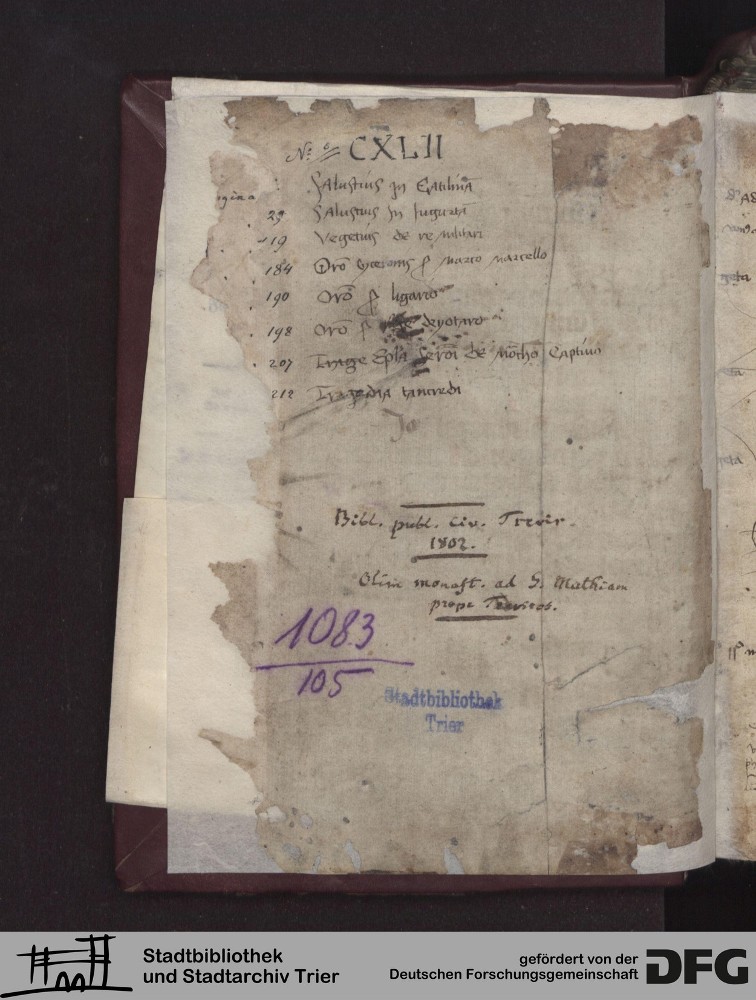 N:º CXLII
Salustius in Catilinā
pagina
29 Salustius in Iugurtā
119 Vegetius de re militari
184 Orō Cyceronis ꝓ Marco Marcello
190 Orō ꝓ ligario
198 Orō ꝓ deyotaro
207 Epła de captiuo
212 Tragedia tancredi
Jo
Bibl. publ. civ. Trevir.
1802.
Olim monast. ad S. Mathiam
prope Treviros.
1083
105
Stadtbibliothek
Trier
Stadtbibliothek
und Stadtarchiv Trier
gefördert von der
Deutschen Forschungsgemeinschaft
DFG